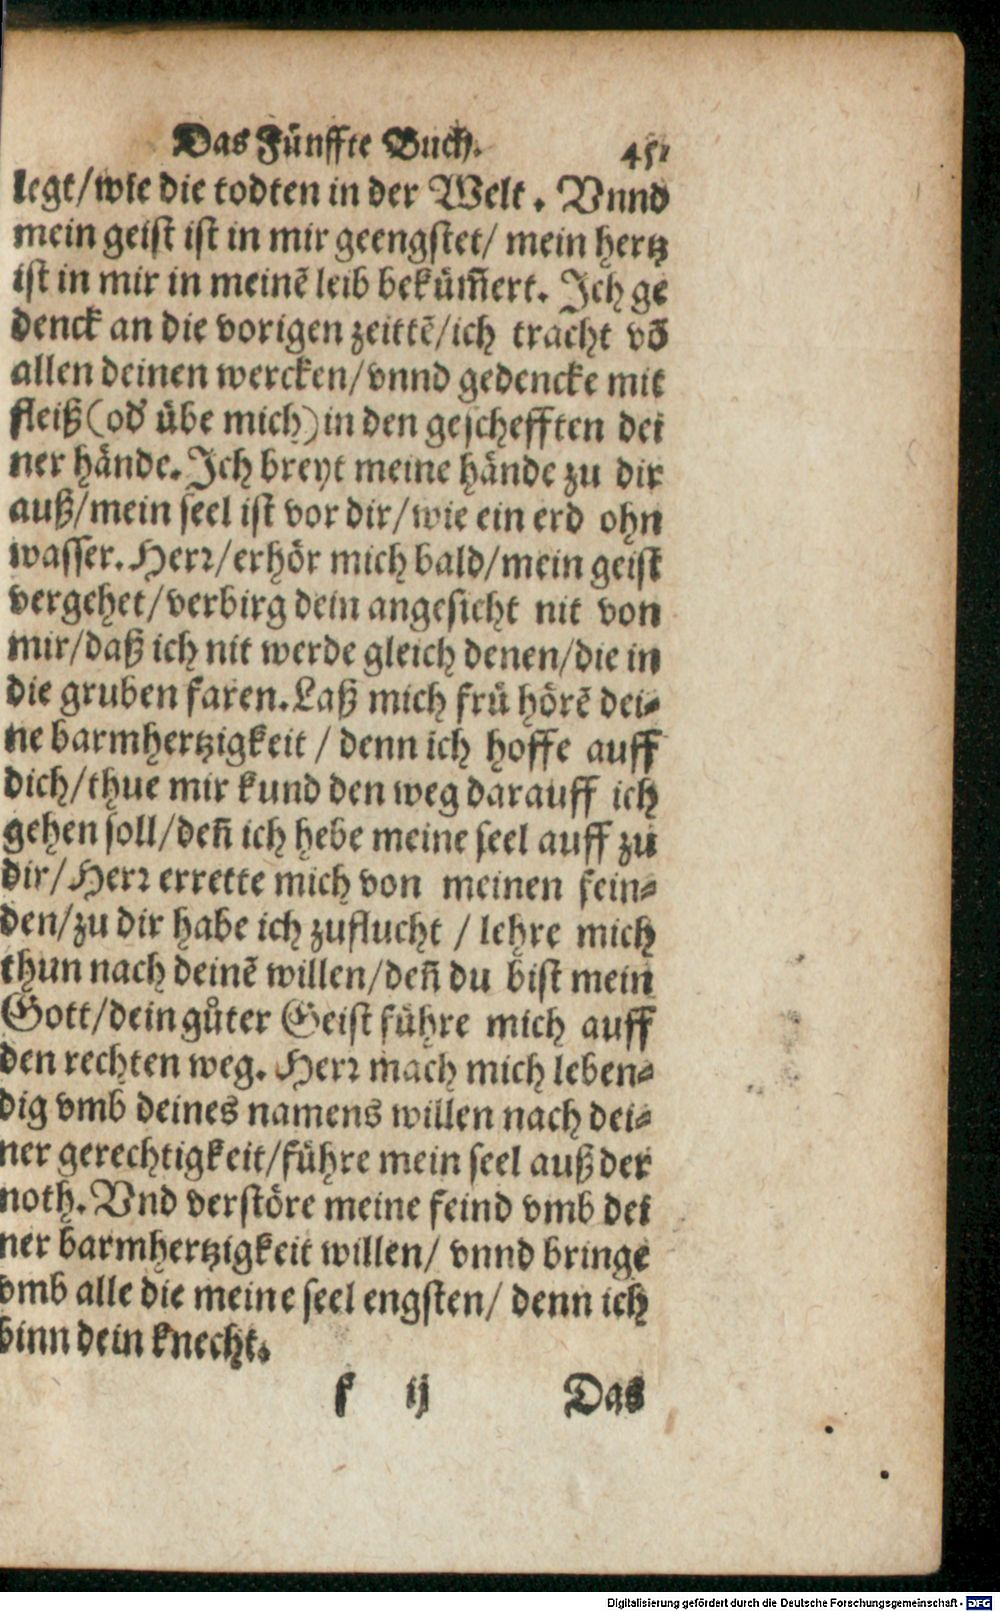 Das Fünffte Buch. 451
legt/wie die todten in der Welt. Vnnd
mein geist ist in mir geengstet/ mein hertz
ist in mir in meinē leib bekům̄ert. Ich ge
denck an die vorigen zeittē/ich tracht vō
allen deinen wercken/vnnd gedencke mit
fleiß(od' übe mich)in den geschefften dei
ner hände. Ich breyt meine hände zu dir
auß/mein seel ist vor dir/wie ein erd ohn
wasser. Herr/erhör mich bald/mein geist
vergehet/verbirg dein angesicht nit von
mir/daß ich nit werde gleich denen/die in
die gruben faren. Laß mich frü hörē dei-
ne barmhertzigkeit / denn ich hoffe auff
dich/thue mir kund den weg darauff ich
gehen soll/deñ ich hebe meine seel auff zu
dir/Herr errette mich von meinen fein-
den/zu dir habe ich zuflucht / lehre mich
thun nach deinē willen/deñ du bist mein
Gott/dein gůter Geist führe mich auff
den rechten weg. Herr mach mich leben-
dig vmb deines namens willen nach dei-
ner gerechtigkeit/führe mein seel auß der
noth. Vnd verstöre meine feind vmb dei
ner barmhertzigkeit willen/ vnnd bringe
vmb alle die meine seel engsten/ denn ich
binn dein knecht.
k ij Das
Digitalisierung gefördert durch die Deutsche Forschungsgemeinschaft - DFG